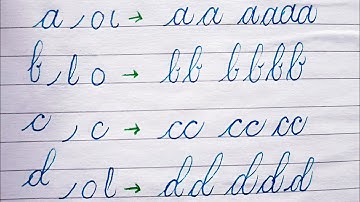 a , o ι → a a a a a a
b , l o → b b b b b b
c , c → c c c c c c
d , o l → d d d d d